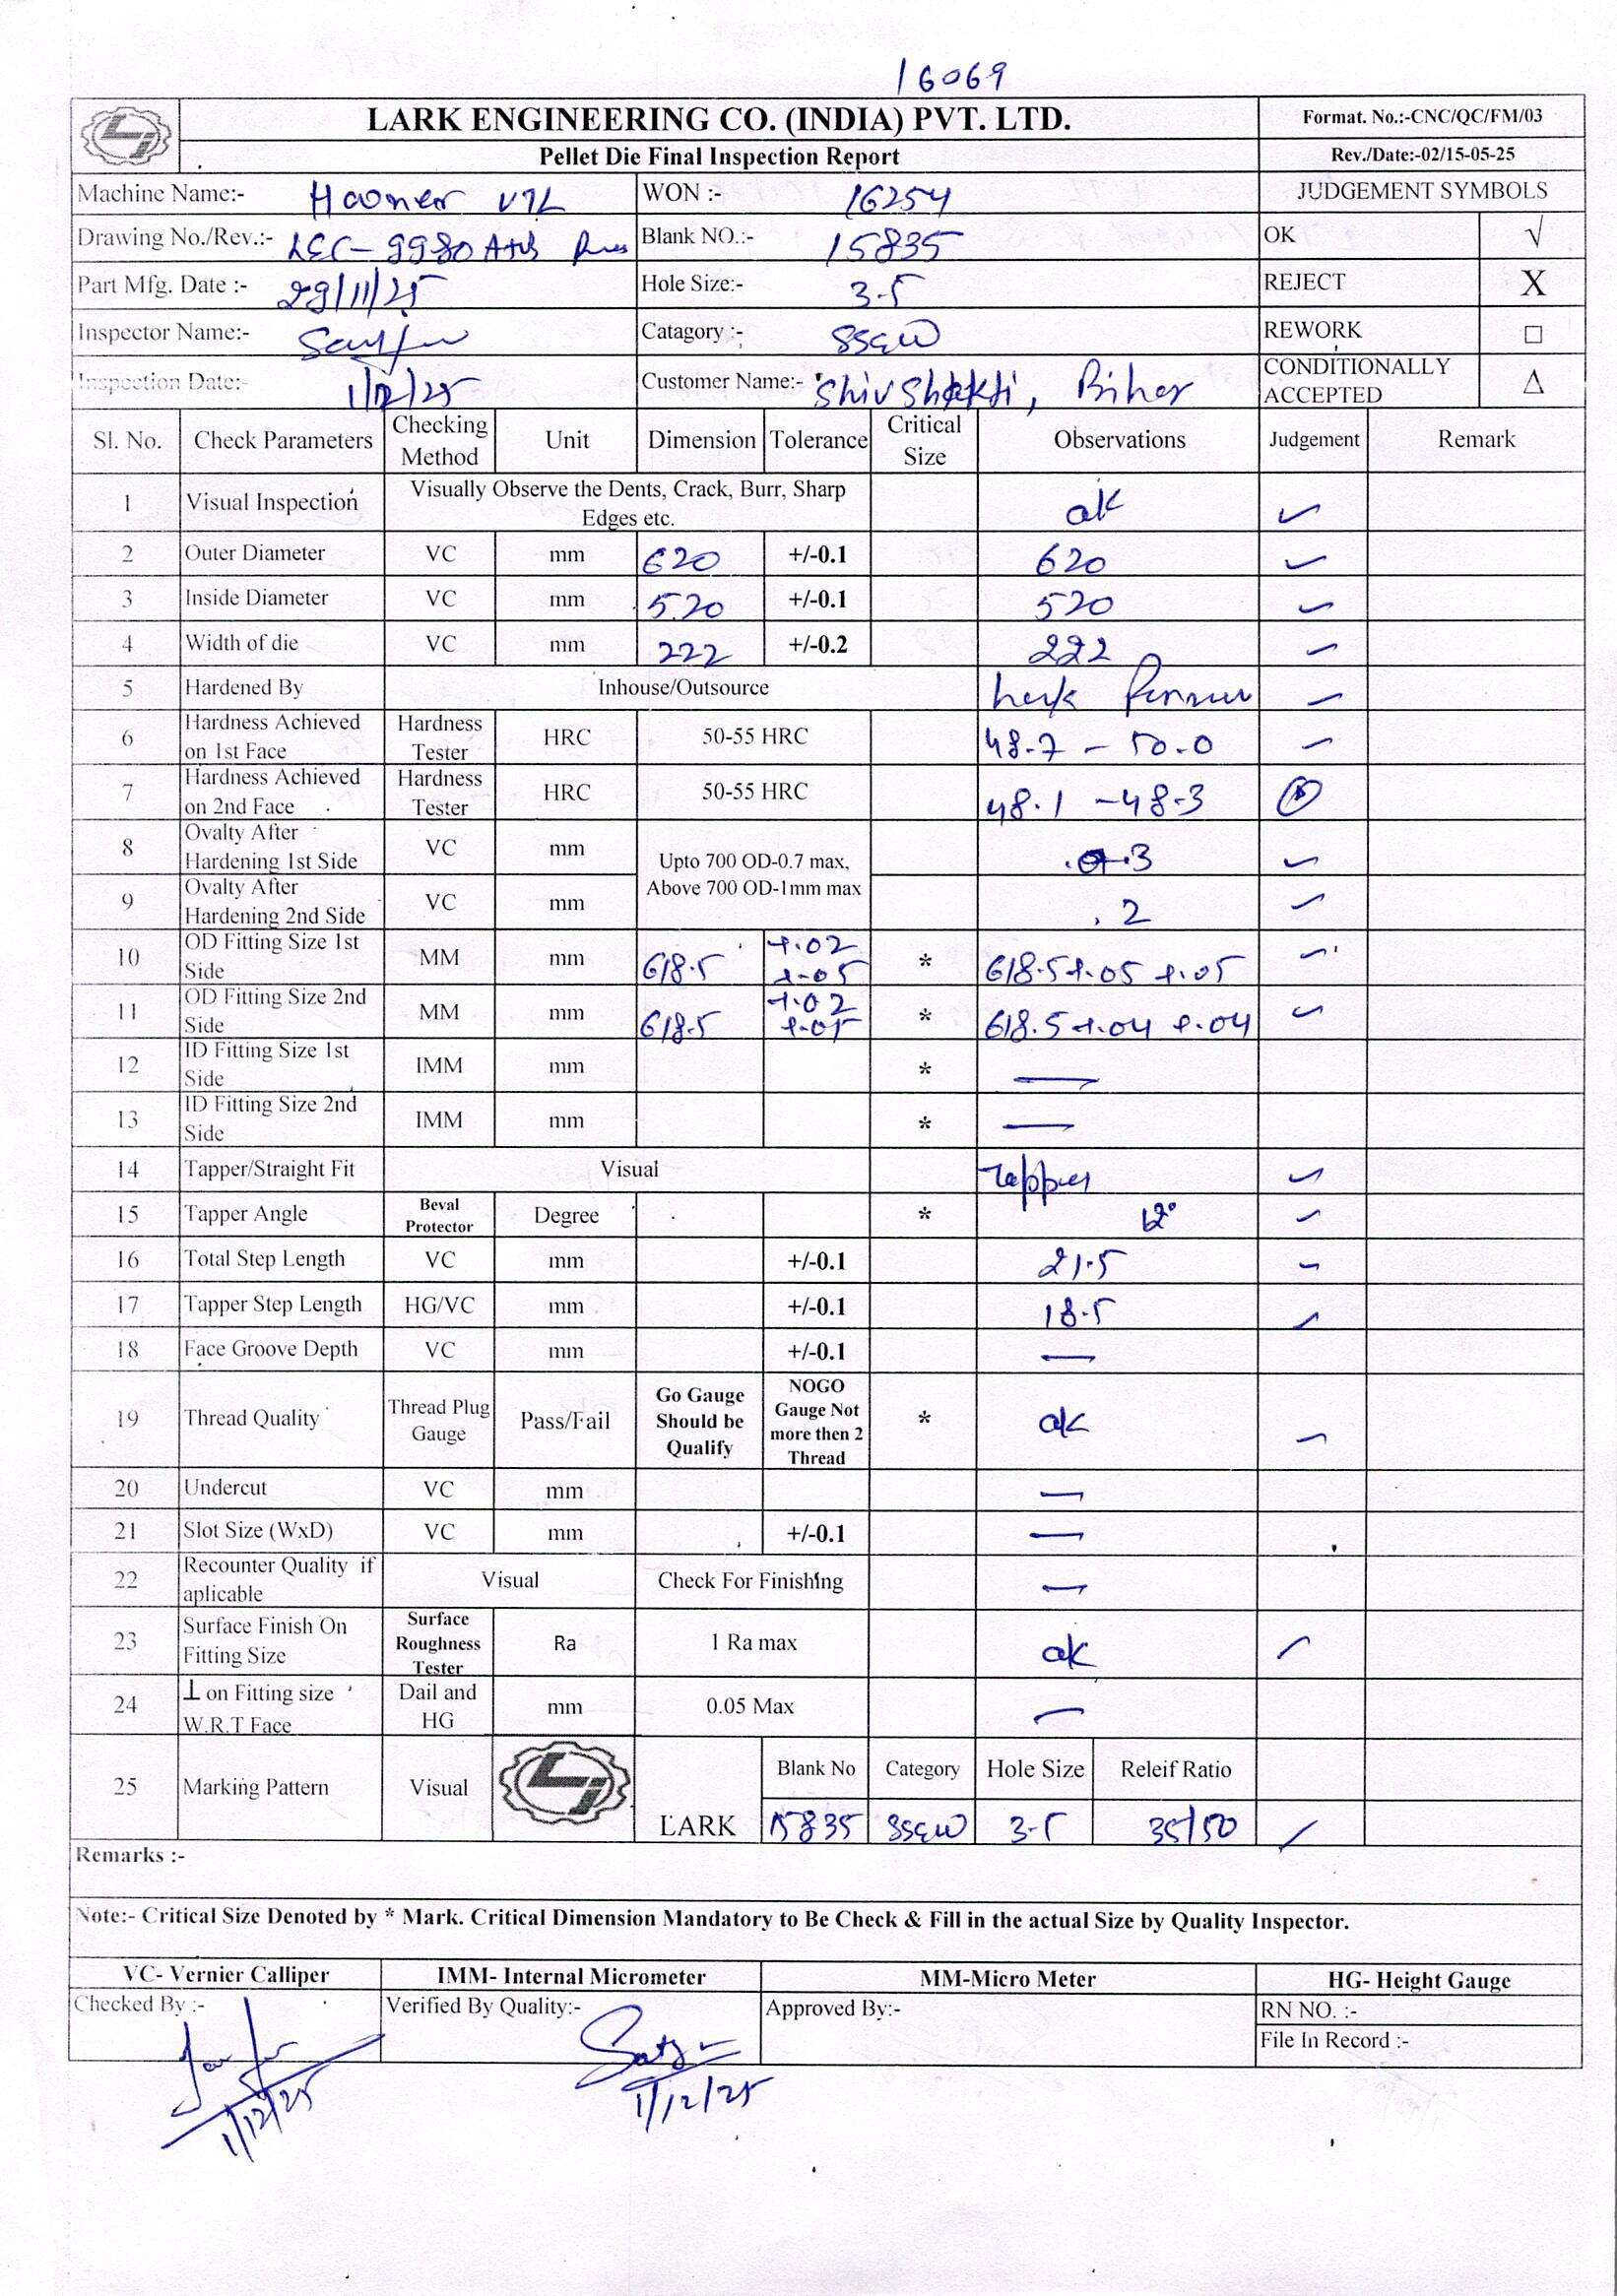 16069
LARK ENGINEERING CO. (INDIA) PVT. LTD. Format. No.:-CNC/QC/FM/03
Pellet Die Final Inspection Report Rev./Date:-02/15-05-25
Machine Name:- VTL WON :- 16254 JUDGEMENT SYMBOLS
Drawing No./Rev.:- LEC-9980 Blank NO.:- 15835 OK √
Part Mfg. Date :- 29/11/25 Hole Size:- 3.5 REJECT X
Inspector Name:- Catagory :- SSGW REWORK □
Inspection Date:- 1/12/25 Customer Name:- Shiv Shakti, Bihar CONDITIONALLY ACCEPTED Δ
Sl. No. Check Parameters Checking Method Unit Dimension Tolerance Critical Size Observations Judgement Remark
1 Visual Inspection Visually Observe the Dents, Crack, Burr, Sharp Edges etc. ok ✓
2 Outer Diameter VC mm 620 +/-0.1 620 ✓
3 Inside Diameter VC mm 520 +/-0.1 520 ✓
4 Width of die VC mm 222 +/-0.2 222 ✓
5 Hardened By Inhouse/Outsource ✓
6 Hardness Achieved on 1st Face Hardness Tester HRC 50-55 HRC 48.7 - 50.0 ✓
7 Hardness Achieved on 2nd Face Hardness Tester HRC 50-55 HRC 48.1 - 48.3
8 Ovalty After Hardening 1st Side VC mm Upto 700 OD-0.7 max, Above 700 OD-1mm max .3 ✓
9 Ovalty After Hardening 2nd Side VC mm .2 ✓
10 OD Fitting Size 1st Side MM mm 618.5 +.02 +.05 * 618.5 +.05 +.05 ✓
11 OD Fitting Size 2nd Side MM mm 618.5 +.02 +.05 * 618.5 +.04 +.04 ✓
12 ID Fitting Size 1st Side IMM mm * —
13 ID Fitting Size 2nd Side IMM mm * —
14 Tapper/Straight Fit Visual Tapper ✓
15 Tapper Angle Beval Protector Degree * 12° ✓
16 Total Step Length VC mm +/-0.1 21.5 ✓
17 Tapper Step Length HG/VC mm +/-0.1 18.5 ✓
18 Face Groove Depth VC mm +/-0.1 —
19 Thread Quality Thread Plug Gauge Pass/Fail Go Gauge Should be Qualify NOGO Gauge Not more then 2 Thread * ok ✓
20 Undercut VC mm —
21 Slot Size (WxD) VC mm +/-0.1 —
22 Recounter Quality if aplicable Visual Check For Finishing —
23 Surface Finish On Fitting Size Surface Roughness Tester Ra 1 Ra max ok ✓
24 ⊥ on Fitting size W.R.T Face Dail and HG mm 0.05 Max —
25 Marking Pattern Visual LARK Blank No Category Hole Size Releif Ratio
15835 SSGW 3.5 35/50 ✓
Remarks :-
Note:- Critical Size Denoted by * Mark. Critical Dimension Mandatory to Be Check & Fill in the actual Size by Quality Inspector.
VC- Vernier Calliper IMM- Internal Micrometer MM-Micro Meter HG- Height Gauge
Checked By :- Verified By Quality:- Approved By:- RN NO. :-
File In Record :-
1/12/25 1/12/25